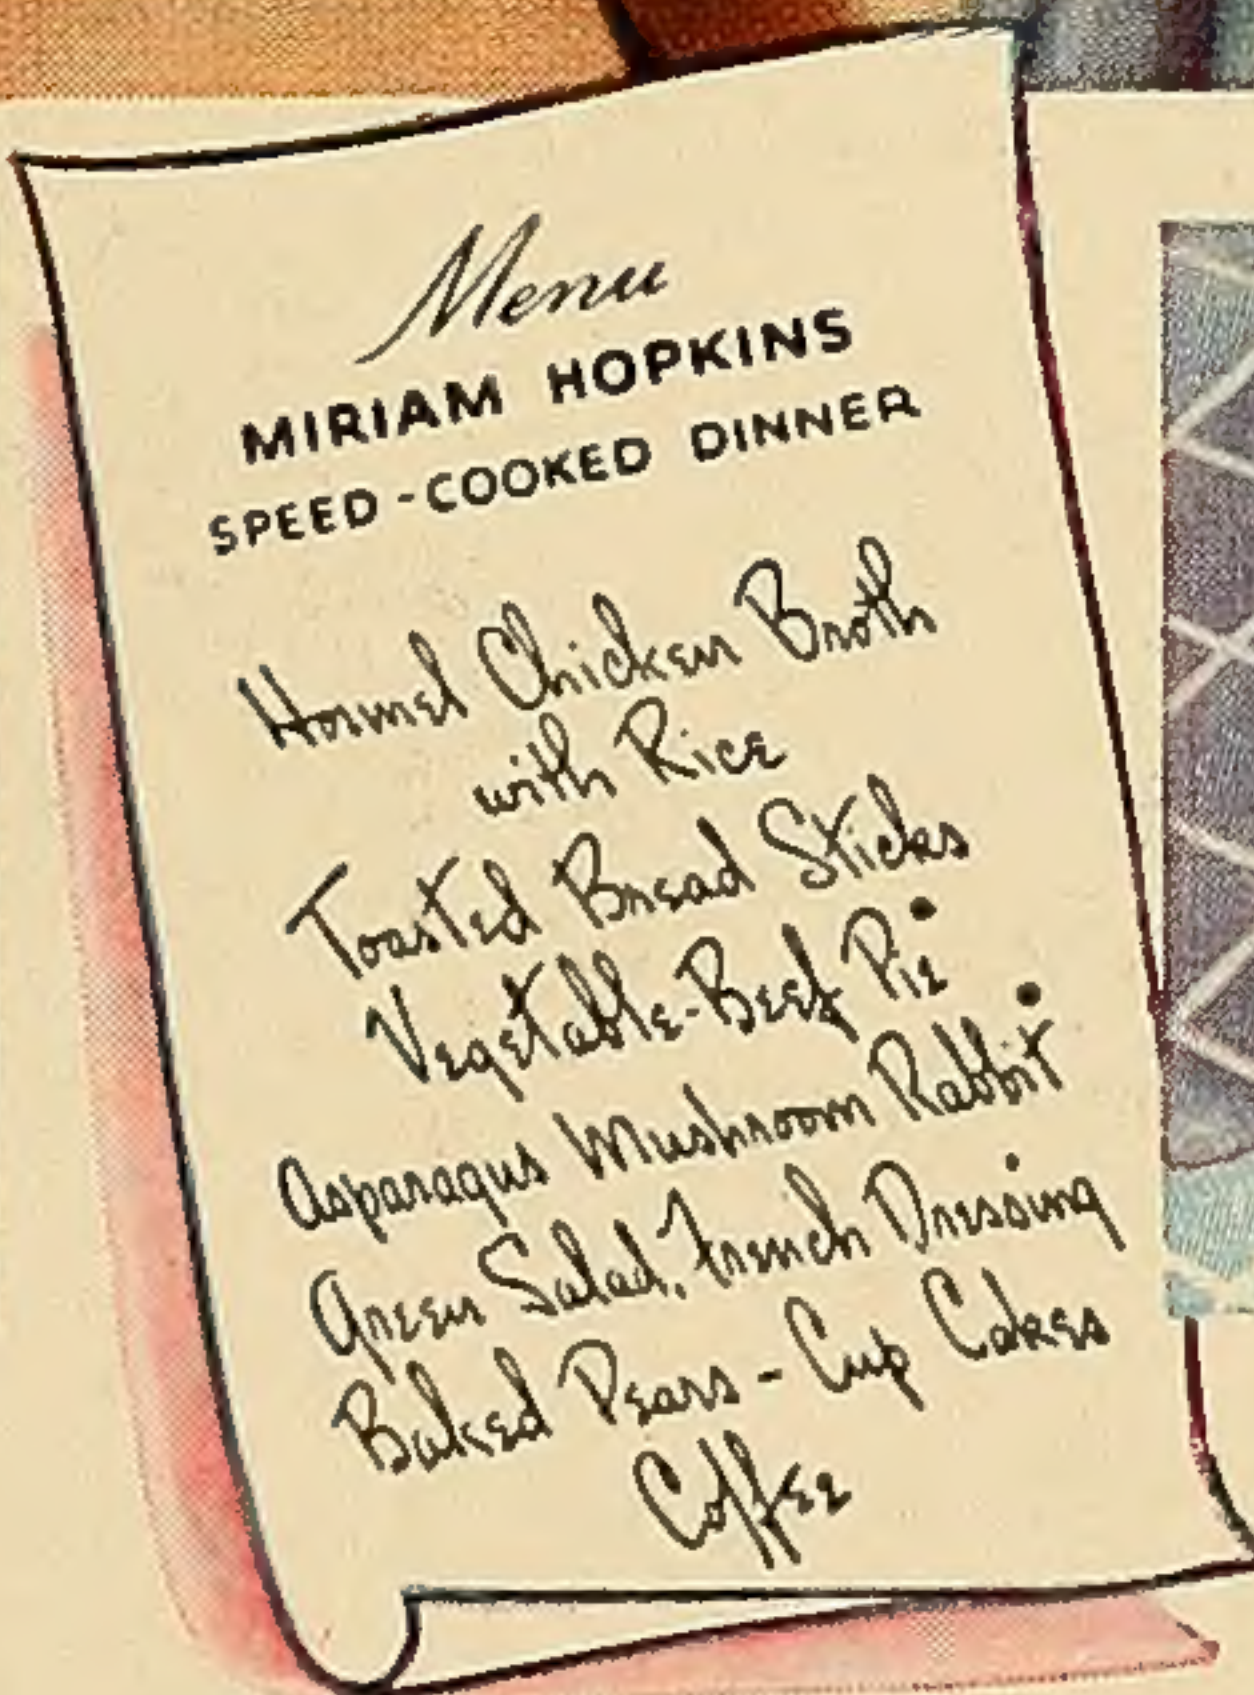 Menu
MIRIAM HOPKINS
SPEED-COOKED DINNER
Hormel Chicken Broth
with Rice
Toasted Bread Sticks
Vegetable-Beef Pie
Asparagus Mushroom Rabbit
Green Salad, French Dressing
Baked Pears - Cup Cakes
Coffee